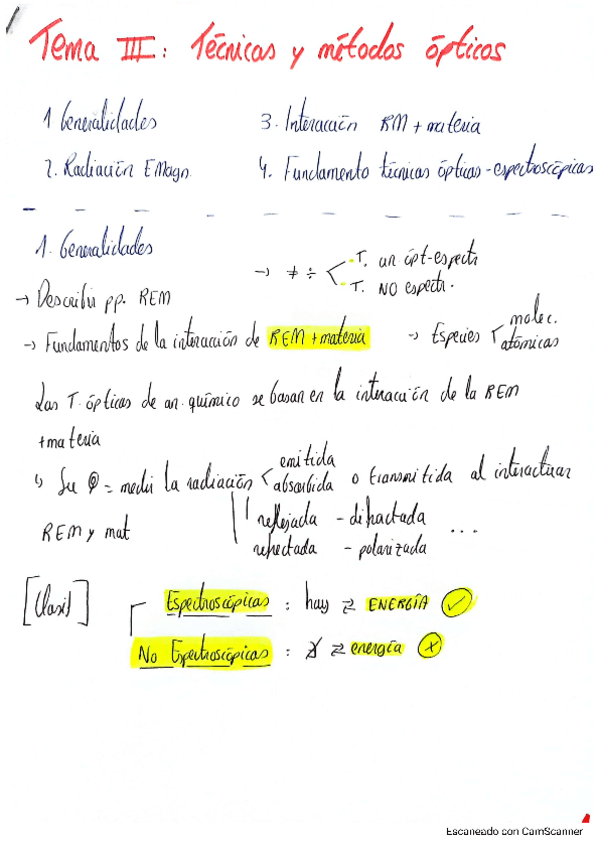 Tema III: Técnicas y métodos ópticos
1 Generalidades
3. Interacción RM + materia
2. Radiación EMagn.
4. Fundamento técnicas ópticas - espectroscópicas
1. Generalidades
→ ≠ ÷ < - T. an ópt-espectr
- T. NO espectr.
→ Describir pp. REM
→ Fundamentos de la interacción de REM + materia → Especies < molec.
atómicas
Las T. ópticas de an. químico se basan en la interacción de la REM
+ materia
↳ Su = medir la radiación < emitida
absorbida o transmitida al interactuar
REM y mat
reflejada - difractada
refractada - polarizada ...
[Clasif]
Espectroscópicas : hay ⇄ ENERGÍA ✓
No Espectroscópicas : ⇄ energía ×
Escaneado con CamScanner